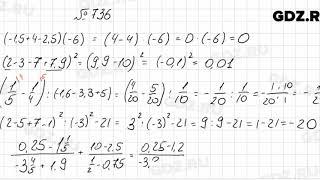 GDZ.R
№736
(-1,5+4-2,5)(-6) = (4-4)·(-6) = 0·(-6) = 0
(2-3-7+7,9)² = (9,9-10)² = (-0,1)² = 0,01
(1/5 - 1/4) : (-1,6-3,3+5) = (4/20 - 5/20) : 1/10 = -1/20 : 1/10 = -1·10/20·1 = -1/2
(2-5+7-1)² : (-3)²-21 = 3²·(-3)²-21 = 9:9-21 = 1-21 = -20
(0,25-1 1/5)/(-3 4/5+1,9) + (10-2,5)/(1/2-0,75) = (0,25-1,2)/(-3,8